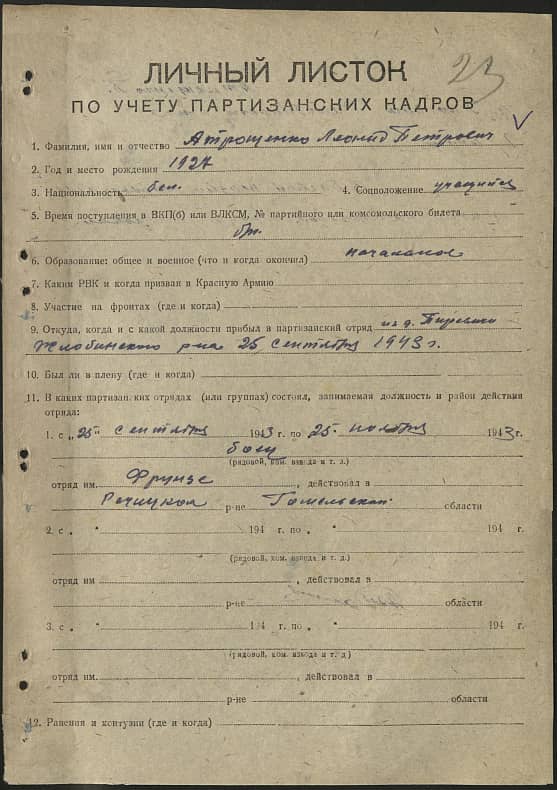 23
ЛИЧНЫЙ ЛИСТОК
ПО УЧЕТУ ПАРТИЗАНСКИХ КАДРОВ
1. Фамилия, имя и отчество Атрощенко Леонид Петрович
2. Год и место рождения 1927
3. Национальность бел. 4. Соцположение учащийся
5. Время поступления в ВКП(б) или ВЛКСМ, № партийного или комсомольского билета
б/п.
6. Образование: общее и военное (что и когда окончил) начальное
7. Каким РВК и когда призван в Красную Армию
8. Участие на фронтах (где и когда)
9. Откуда, когда и с какой должности прибыл в партизанский отряд из д.
Жлобинского р-на 25 сентября 1943 г.
10. Был ли в плену (где и когда)
11. В каких партизанских отрядах (или группах) состоял, занимаемая должность и район действия
отряда:
1. с „25" сентября 1943 г. по 25 ноября 1943 г.
боец
(рядовой, ком. взвода и т. д.)
отряд им. Фрунзе, действовал в
Речицком р-не Гомельской области
2. с „ " 194 г. по „ " 194 г.
(рядовой, ком. взвода и т. д.)
отряд им , действовал в
р-не области
3. с „ " 194 г. по „ " 194 г.
(рядовой, ком. взвода и т. д)
отряд им. , действовал в
р-не области
12. Ранения и контузии (где и когда)